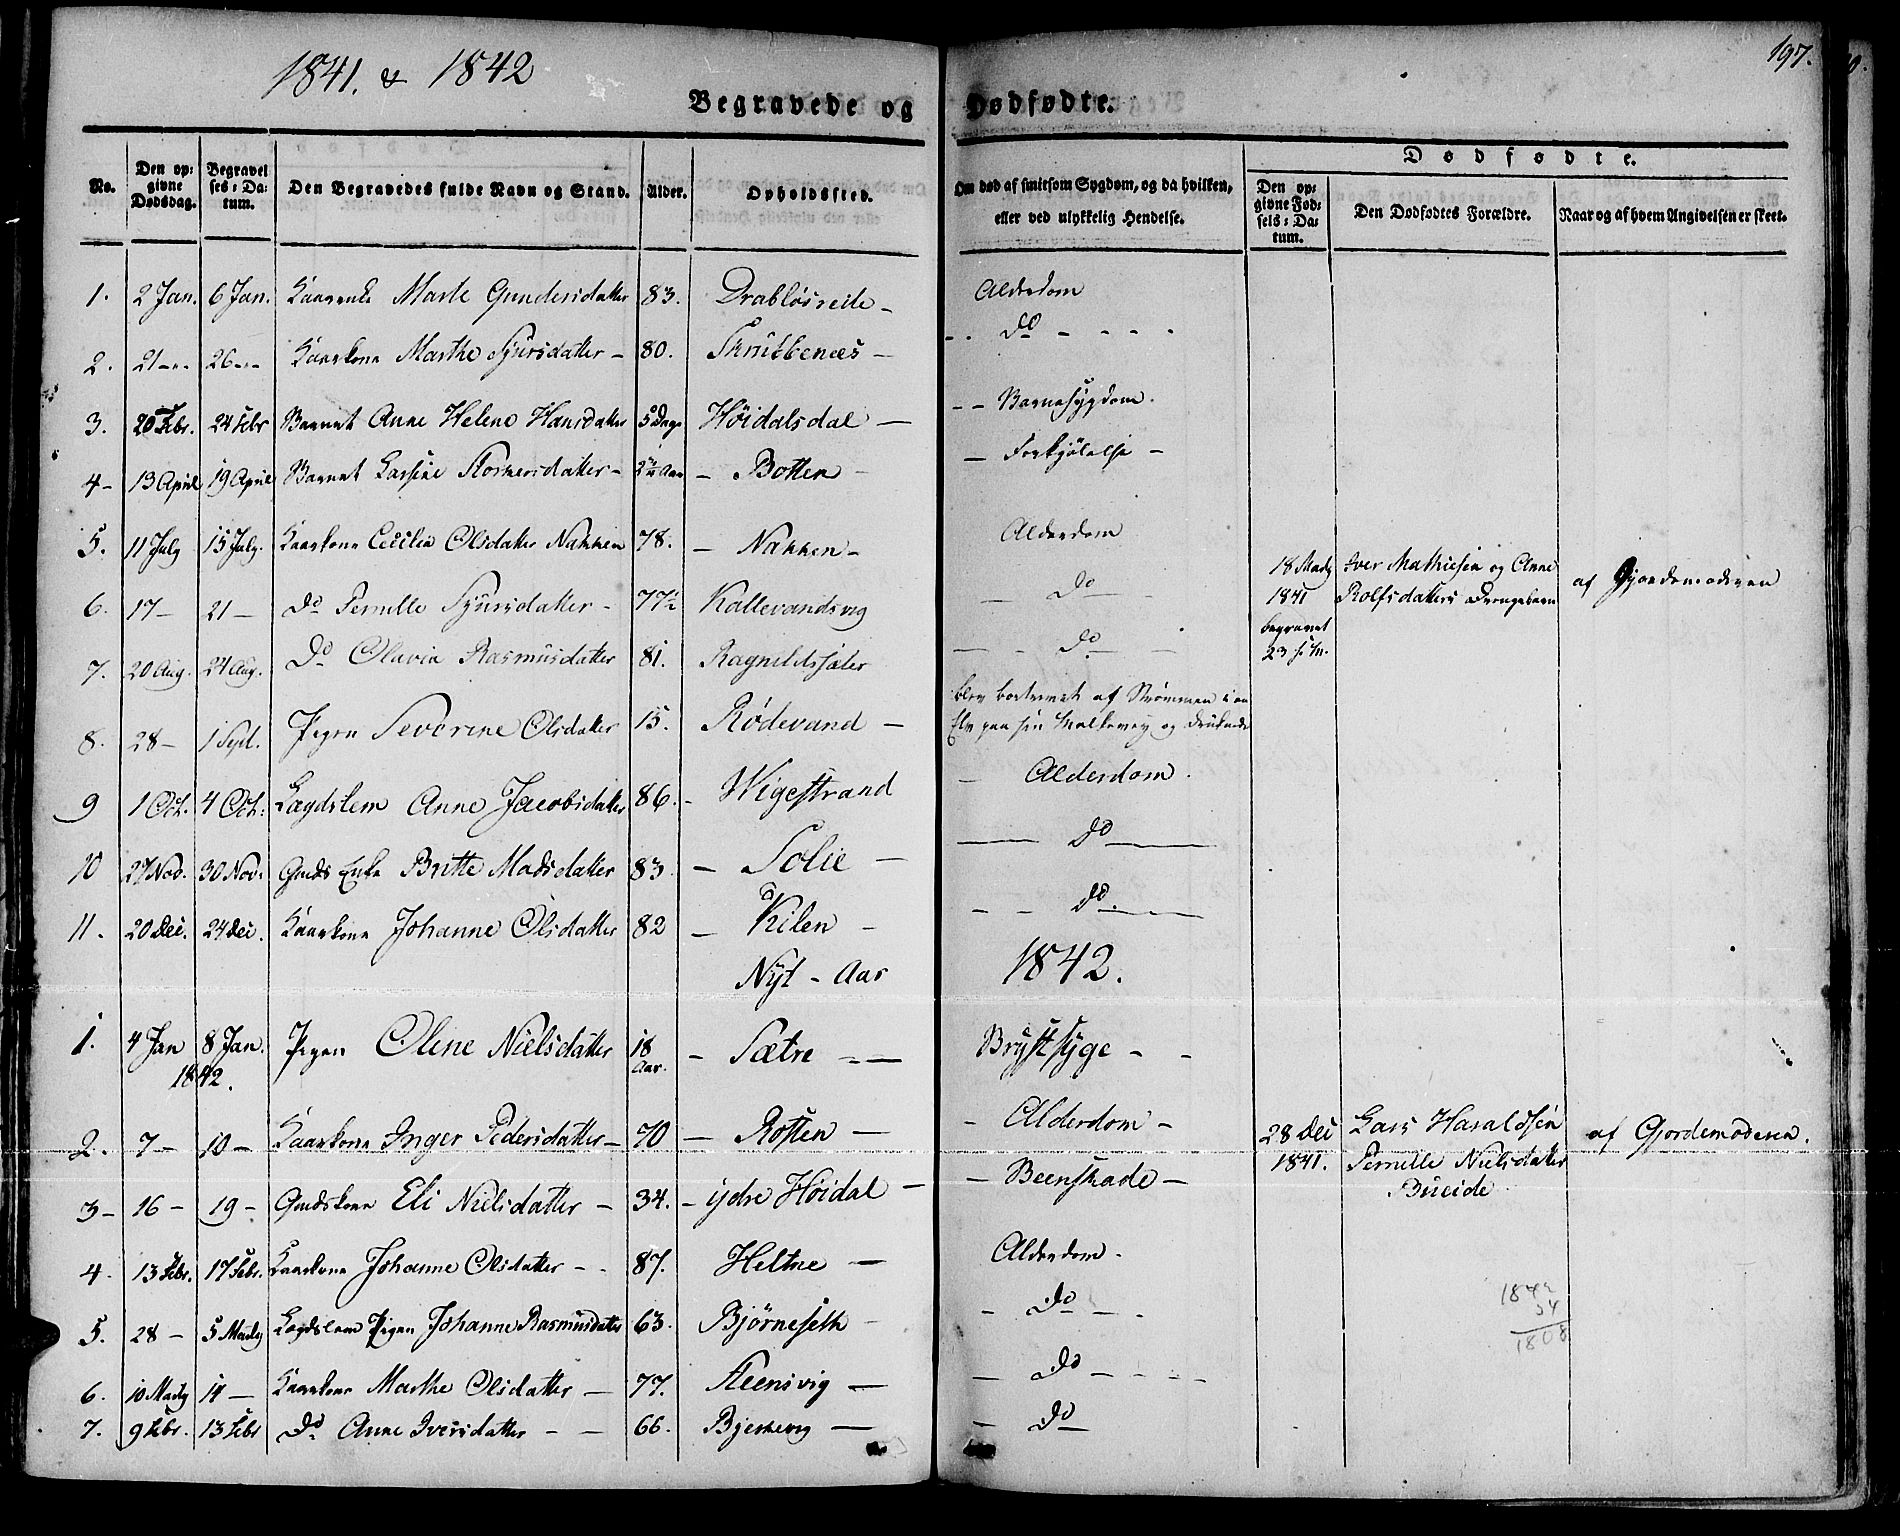 1841. & 1842
197.
Begravede og Dødfødte.
No. Den opgivne Dødsdag. Begravelses-Datum. Den Begravedes fulde Navn og Stand. Alder. Opholdssted. Om død af smitsom Sygdom, og da hvilken, eller ved ulykkelig Hendelse.
Dødfødte.
Den opgivne Fødsels-Datum. Den Dødfødtes Forældre. Naar og af hvem Angivelsen er skeet.
1. 2 Jan. 6 Jan. Kaarenke Marte Gundersdatter 83. Drabløsreite - Alderdom
2. 21 -"- 26 -"- Kaarkone Marthe Sjursdatter - 80. Skrubbenæs - - - Do - - - -
3. 20 Febr. 24 Febr Barnet Anne Helene Hansdatter 5 Dage Høidalsdal - - - Barnesygdom.
4 - 13 April 19 April Barnet Larsine Storkersdatter - 2 1/2 Aar - Botten - - Forkjølelse -
5. 11 July 15 July. Kaarkone Cecilia Olsdatter Nakken 78. - Nakken - Alderdom
6. 17 - 21 - Do Pernille Sjursdatter - 77 1/2 Kallevandsvig - Do -
18 Marty 1841 begravet 23 s. M. Iver Mathiesen og Anne Rolfsdatters Drengebarn af Gjordemoderen
7. 20 Aug. 24 Aug. Do Olavia Rasmusdatter 81. Ragnildssæter - - Do -
8. 28 - 1 Sept. Pigen Severine Olsdatter 15. Rødevand - blev bortrevet af Strømmen i en
Elv paa sin Malkevej og druknede
9 1 Oct. 4 Oct: Lægdslem Anne Jacobsdatter 86. - Wigestrand - Alderdom.
10 27 Nov. 30 Nov. Gmds Enke Britte Madsdatter 83. - Solie - - Do -
11. 20 Dec. 24 Dec. Kaarkone Johanne Olsdatter 82 - Kilen - - - Do. -
Nyt - Aar 1842.
1. 4 Jan 8 Jan. 1842. Pigen Oline Nielsdatter 18 Aar. - Sætre - - Brystsyge - -
2. 7 - 10 - Kaarkone Inger Pedersdatter - 70 - Rotten - - Alderdom -
28 Dec 1841. Lars Haraldsen Pernille Nielsdatter Bueide af Gjordemoderen.
3 - 16 - 19 - Gmdskone Eli Nielsdatter - 34. - ydre Høidal - - Beenskade -
4. 13 Febr. 17 Febr. Kaarkone Johanne Olsdatter - - 87. Heltne - Alderdom.
1842
34
1808
5. 28 - 5 Marty Lægdslem Pigen Johanne Rasmusdatter 63. Bjørneseth - - Do - -
6. 10 Marty 14 - Kaarkone Marthe Olsdatter - 77. Steensvig - - Do - - - -
7. 9 Febr. 13 Febr Do Anne Iversdatter - - 66. Bjerkevig - - Do -